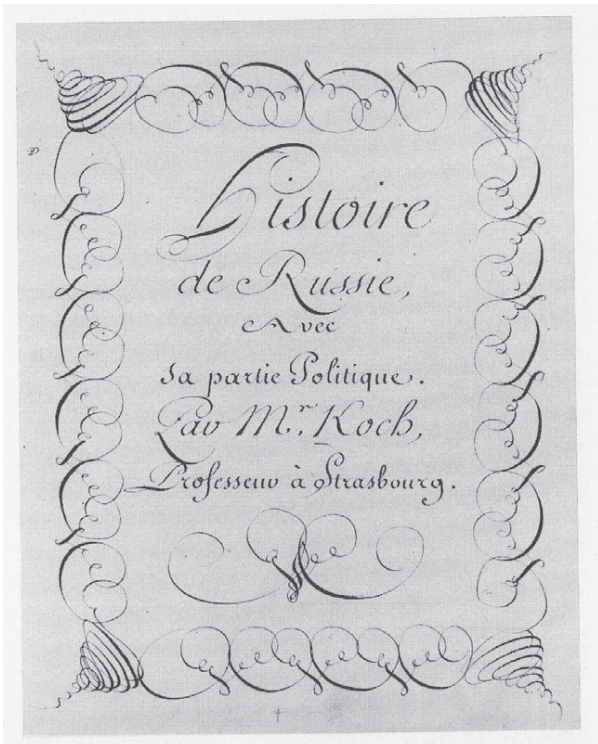 Histoire
de Russie,
Avec
sa partie Politique.
Par Mr. Koch,
Professeur à Strasbourg.